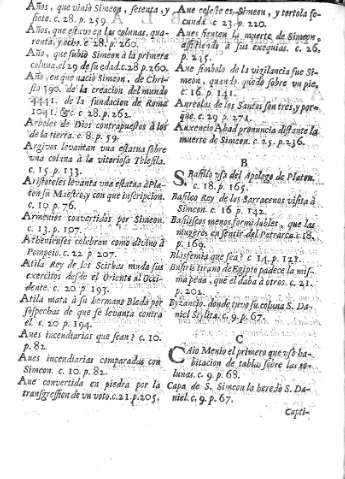 Años, que viuiò Simeon, setenta, y
siete. c. 28. p. 259.
Años, que estuvo en las colunas, qua-
renta, y ocho. c. 28. p. 260.
Año, que subiò Simeon à la primera
coluna, el 29. de su edad. c. 28. p. 260.
Año, en que naciò Simeon, de Chri-
sto 390. de la creacion del mundo
4441. de la fundacion de Roma
1041. &c. c. 28. p. 262.
Arboles de Dios contrapuestos à los
de la tierra. c. 8. p. 59.
Argivos levantan vna estatua sobre
vna coluna à la vitoriosa Telesila.
c. 15. p. 133.
Aristoteles levanta vna estatua à Pla-
ton su Maestro, y con que inscripcion.
c. 10. p. 76.
Armenios convertidos por Simeon.
c. 13. p. 107.
Athenienses celebran como divino à
Pompeio. c. 22. p. 207.
Atila Rey de los Scithas muda sus
exercitos desde el Oriente al Occi-
dente. c. 20. p. 193.
Atila mata à su hermano Bleda por
sospechas de que se levanta contra
èl. c. 20. p. 194.
Aues incendiarias que sean? c. 10.
p. 82.
Aues incendiarias comparadas con
Simeon. c. 10. p. 82.
Aue convertida en piedra por la
transgression de vn voto. c. 21. p. 205.
Aue celeste es Simeon, y tortola se-
cunda. c. 23. p. 220.
Aues sienten la muerte de Simeon,
assistiendo à sus exequias. c. 26.
p. 245.
Aue simbolo de la vigilancia fue Si-
meon, quando quedò sobre vn pie.
c. 16. p. 141.
Aureolas de los Santos son tres, y por-
que. c. 29. p. 274.
Auxencio Abad pronuncia distante la
muerte de Simeon. c. 25. p. 236.
B
S. Basilio vsa del Apologo de Platon.
c. 18. p. 165.
Basilico Rey de los Sarracenos visita à
Simeon. c. 16. p. 142.
Basiliscos menos formidables, que las
mugeres en sentir del Petrarca. c. 18.
p. 169.
Blasfemia que sea? c. 14. p. 121.
Busiris tirano de Egipto padece la mis-
ma pena, que èl daba à otros. c. 21.
p. 202.
Byzancio, donde tuvo su coluna S. Da-
niel Stilita. c. 9. p. 67.
C
Caio Menio el primero que vsò ha-
bitacion de tablas sobre las co-
lunas. c. 9. p. 68.
Capa de S. Simeon la heredò S. Da-
niel. c. 9. p. 67.
Capti-